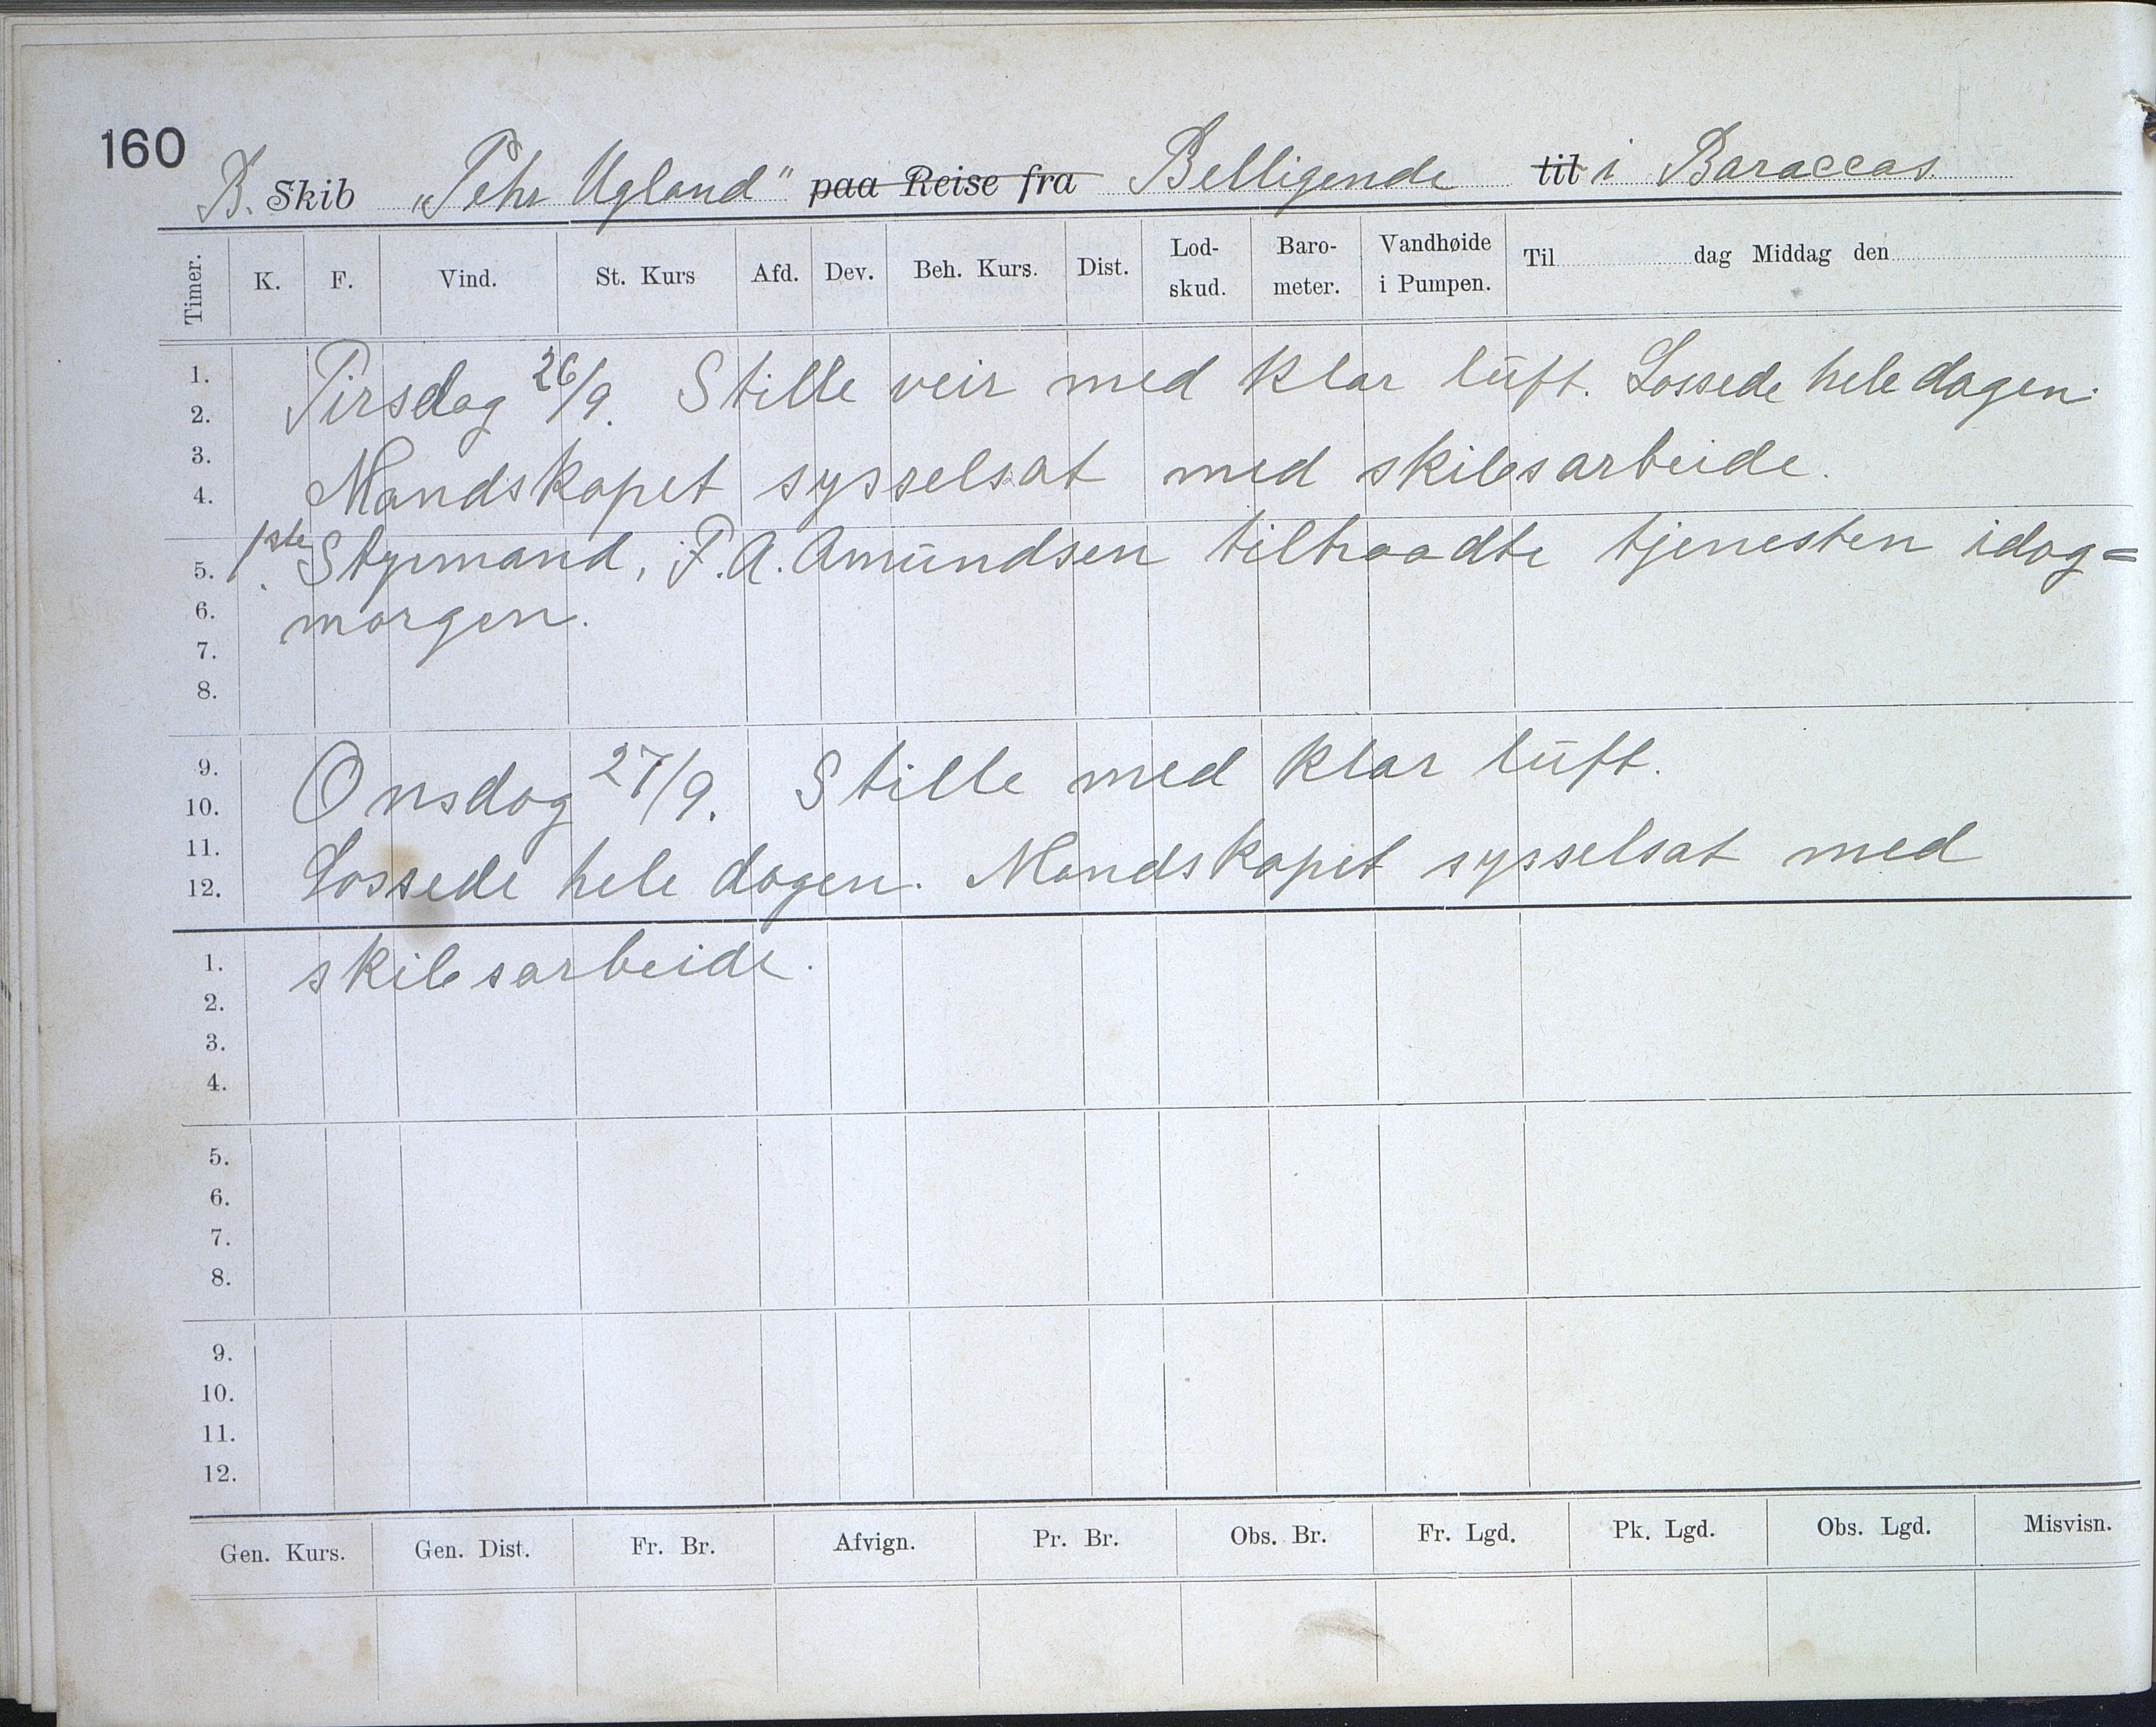 160
B. Skib „Pehr Ugland" paa Reise fra Belligende til i Baraccas.
Timer. K. F. Vind. St. Kurs Afd. Dev. Beh. Kurs. Dist. Lod-skud. Baro-meter. Vandhøide i Pumpen. Til dag Middag den
1.
2.
3.
4.
5.
6.
7.
8.
9.
10.
11.
12.
1.
2.
3.
4.
5.
6.
7.
8.
9.
10.
11.
12.
Tirsdag 26/9. Stille veir med klar luft. Lossede hele dagen.
Mandskapet sysselsat med skibsarbeide.
1ste Styrmand, F. A. Amundsen tiltraadte tjenesten idag=
morgen.
Onsdag 27/9. Stille med klar luft.
Lossede hele dagen. Mandskapet sysselsat med
skibsarbeide.
Gen. Kurs. Gen. Dist. Fr. Br. Afvign. Pr. Br. Obs. Br. Fr. Lgd. Pk. Lgd. Obs. Lgd. Misvisn.